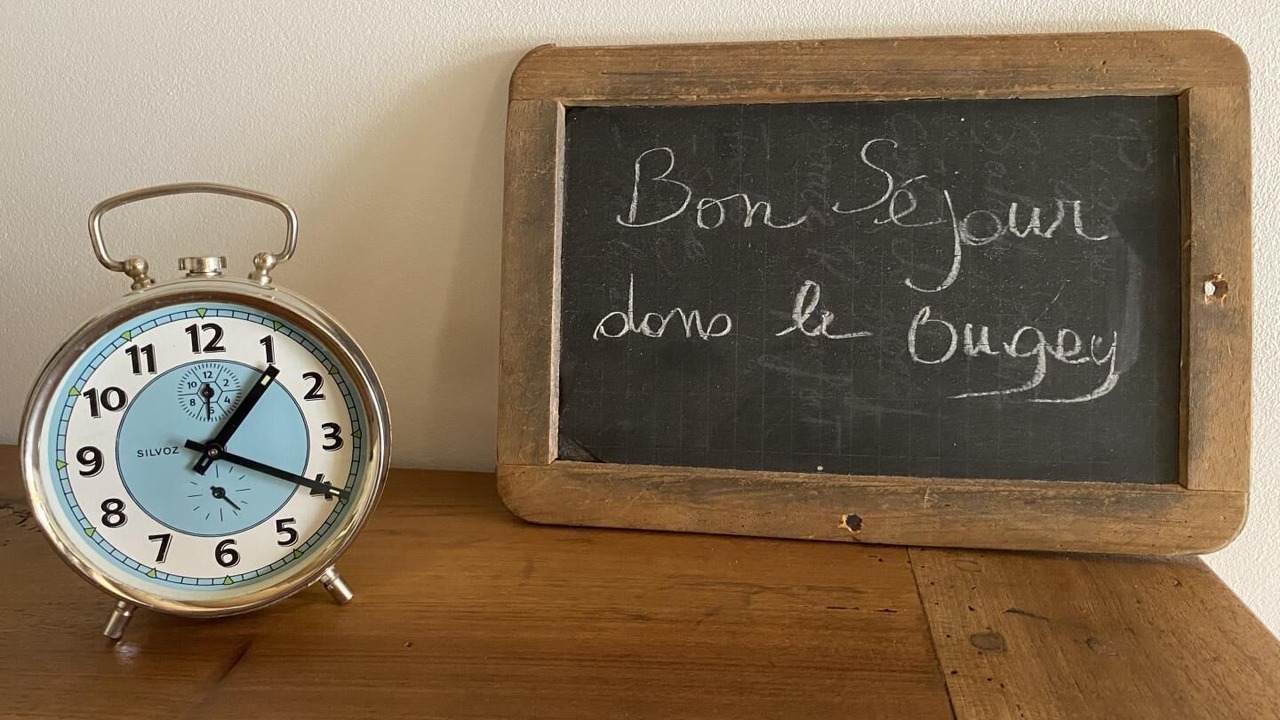 Bon Séjour
dans le Bugey
12
1
2
3
4
5
6
7
8
9
10
11
12
2
4
6
8
10
SILVOZ